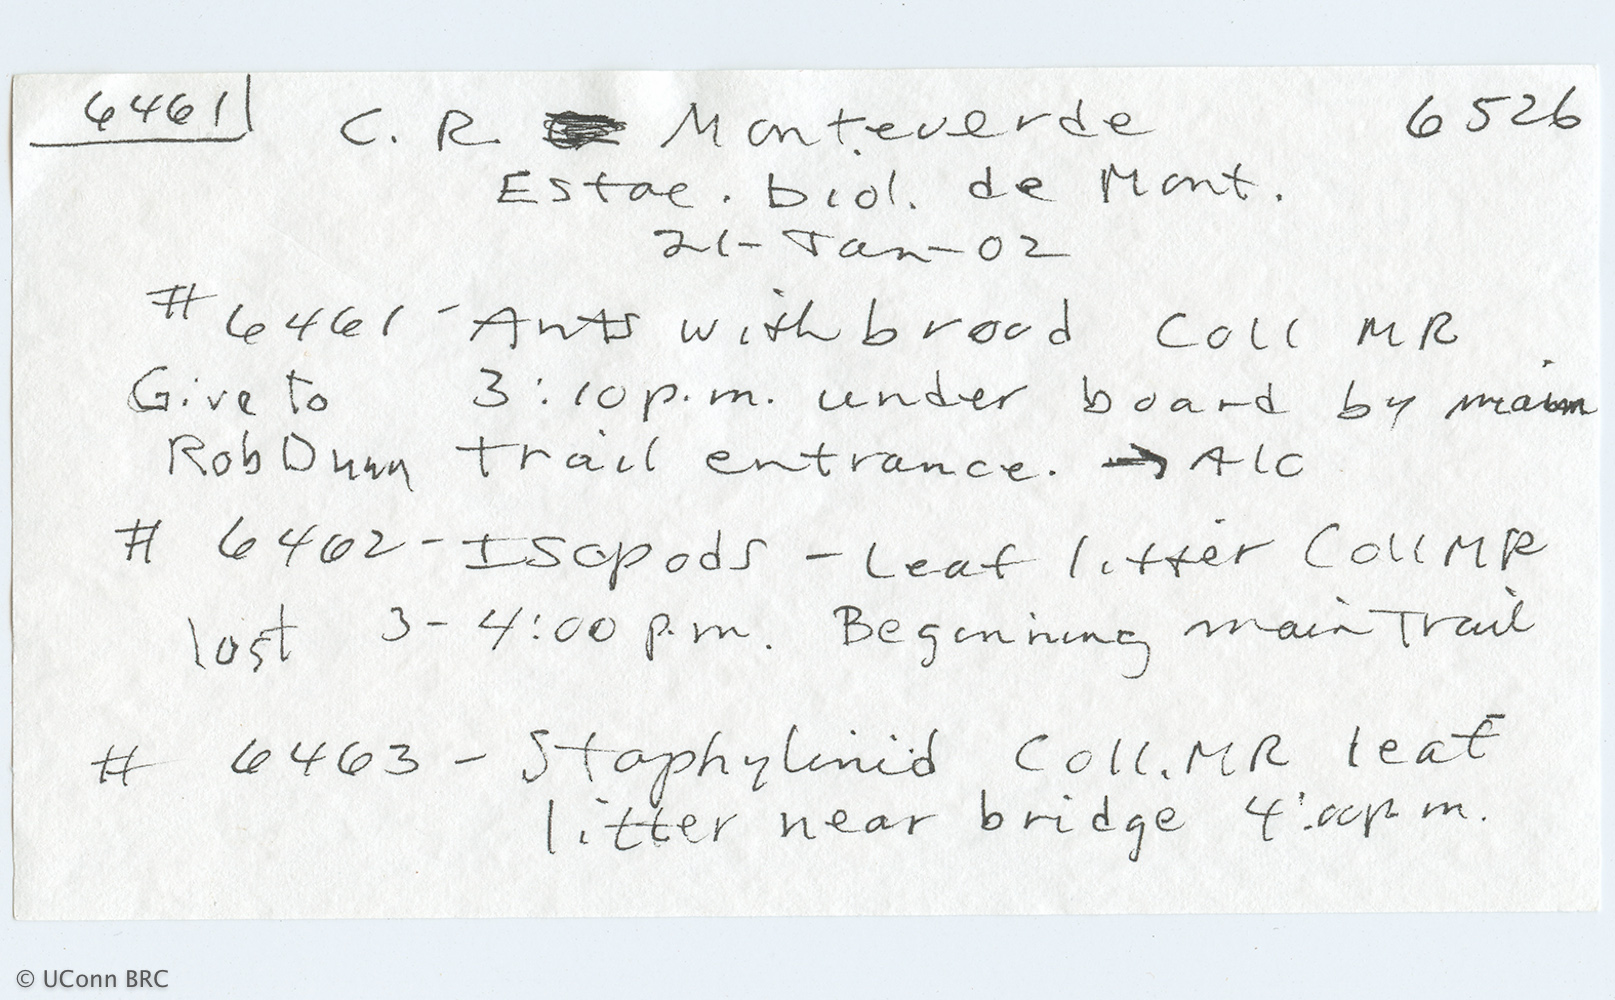 6461 C. R. Monteverde 6526
Estac. biol. de Mont.
21-Jan-02
# 6461 - Ants with brood Coll MR
Give to 3:10 p.m. under board by main
Rob Dunn trail entrance. → Alc
# 6462 - Isopods - Leaf litter Coll MR
lost 3-4:00 p.m. Beginning main Trail
# 6463 - Staphylinid Coll. MR leaf
litter near bridge 4:00 p.m.
© UConn BRC